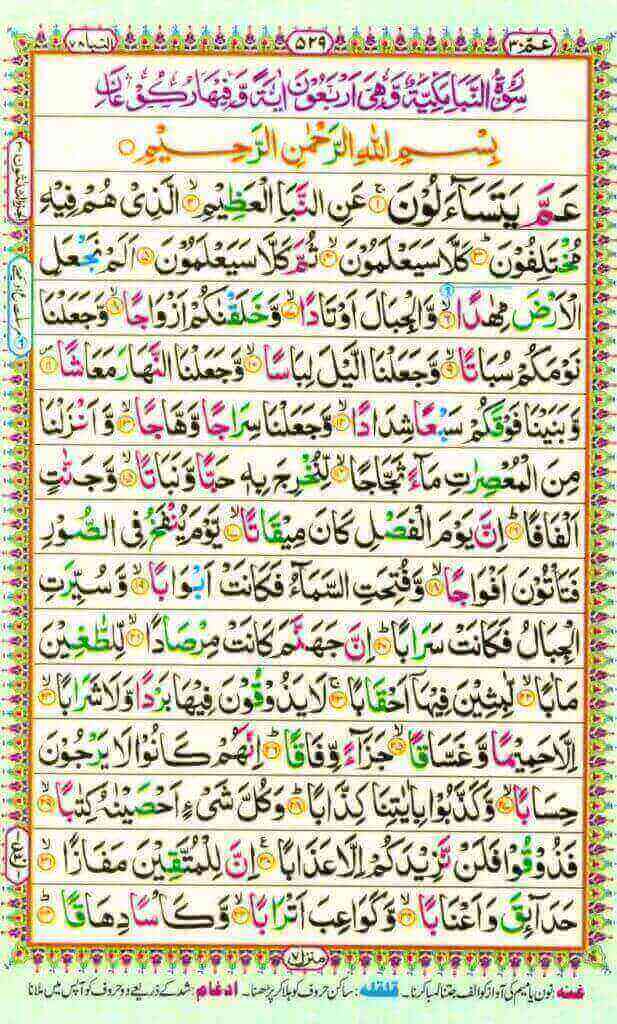 عَمّ ۳۰
۵۲۹
النبا ۷۸
سُوْرَةُ النَّبَاِ مَكِّيَّةٌ وَّهِیَ اَرْبَعُوْنَ اٰيَةً وَّفِيْهَا رُكُوْعَانِ
بِسْمِ اللّٰهِ الرَّحْمٰنِ الرَّحِيْمِ
عَمَّ يَتَسَآءَلُوْنَ ۚ‏﴿۱﴾ عَنِ النَّبَاِ الْعَظِيْمِ ۙ‏﴿۲﴾ الَّذِىْ هُمْ فِيْهِ
مُخْتَلِفُوْنَ ؕ‏﴿۳﴾ كَلَّا سَيَعْلَمُوْنَ ۙ‏﴿۴﴾ ثُمَّ كَلَّا سَيَعْلَمُوْنَ ﴿۵﴾ اَلَمْ نَجْعَلِ
الْاَرْضَ مِهٰدًا ۙ‏﴿۶﴾ وَّالْجِبَالَ اَوْتَادًا ۙ‏﴿۷﴾ وَّخَلَقْنٰكُمْ اَزْوَاجًا ۙ‏﴿۸﴾ وَّجَعَلْنَا
نَوْمَكُمْ سُبَاتًا ۙ‏﴿۹﴾ وَّجَعَلْنَا الَّيْلَ لِبَاسًا ۙ‏﴿۱۰﴾ وَّجَعَلْنَا النَّهَارَ مَعَاشًا ۙ‏﴿۱۱﴾
وَّبَنَيْنَا فَوْقَكُمْ سَبْعًا شِدَادًا ۙ‏﴿۱۲﴾ وَّجَعَلْنَا سِرَاجًا وَّهَّاجًا ۙ‏﴿۱۳﴾ وَّاَنْزَلْنَا
مِنَ الْمُعْصِرٰتِ مَآءً ثَجَّاجًا ۙ‏﴿۱۴﴾ لِّنُخْرِجَ بِهٖ حَبًّا وَّنَبَاتًا ۙ‏﴿۱۵﴾ وَّجَنّٰتٍ
اَلْفَافًا ؕ‏﴿۱۶﴾ اِنَّ يَوْمَ الْفَصْلِ كَانَ مِيْقَاتًا ۙ‏﴿۱۷﴾ يَّوْمَ يُنْفَخُ فِى الصُّوْرِ
فَتَاْتُوْنَ اَفْوَاجًا ۙ‏﴿۱۸﴾ وَّفُتِحَتِ السَّمَآءُ فَكَانَتْ اَبْوَابًا ۙ‏﴿۱۹﴾ وَّسُيِّرَتِ
الْجِبَالُ فَكَانَتْ سَرَابًا ؕ‏﴿۲۰﴾ اِنَّ جَهَنَّمَ كَانَتْ مِرْصَادًا ۙ‏﴿۲۱﴾ لِّلطّٰغِيْنَ
مَاٰبًا ۙ‏﴿۲۲﴾ لّٰبِثِيْنَ فِيْهَآ اَحْقَابًا ۚ‏﴿۲۳﴾ لَا يَذُوْقُوْنَ فِيْهَا بَرْدًا وَّلَا شَرَابًا ۙ‏﴿۲۴﴾
اِلَّا حَمِيْمًا وَّغَسَّاقًا ۙ‏﴿۲۵﴾ جَزَآءً وِّفَاقًا ؕ‏﴿۲۶﴾ اِنَّهُمْ كَانُوْا لَا يَرْجُوْنَ
حِسَابًا ۙ‏﴿۲۷﴾ وَّكَذَّبُوْا بِاٰيٰتِنَا كِذَّابًا ؕ‏﴿۲۸﴾ وَكُلَّ شَىْءٍ اَحْصَيْنٰهُ كِتٰبًا ۙ‏﴿۲۹﴾
فَذُوْقُوْا فَلَنْ نَّزِيْدَكُمْ اِلَّا عَذَابًا ‏﴿۳۰﴾ اِنَّ لِلْمُتَّقِيْنَ مَفَازًا ۙ‏﴿۳۱﴾
حَدَآئِقَ وَاَعْنَابًا ۙ‏﴿۳۲﴾ وَّكَوَاعِبَ اَتْرَابًا ۙ‏﴿۳۳﴾ وَّكَاْسًا دِهَاقًا ؕ‏﴿۳۴﴾
منزل ۷
غنه: نون یا میم کی آواز کو الف جتنا لمبا کرنا۔ قلقله: ساکن حروف کو ہلا کر پڑھنا۔ ادغام: شد کے ذریعے دو حروف کو آپس میں ملانا